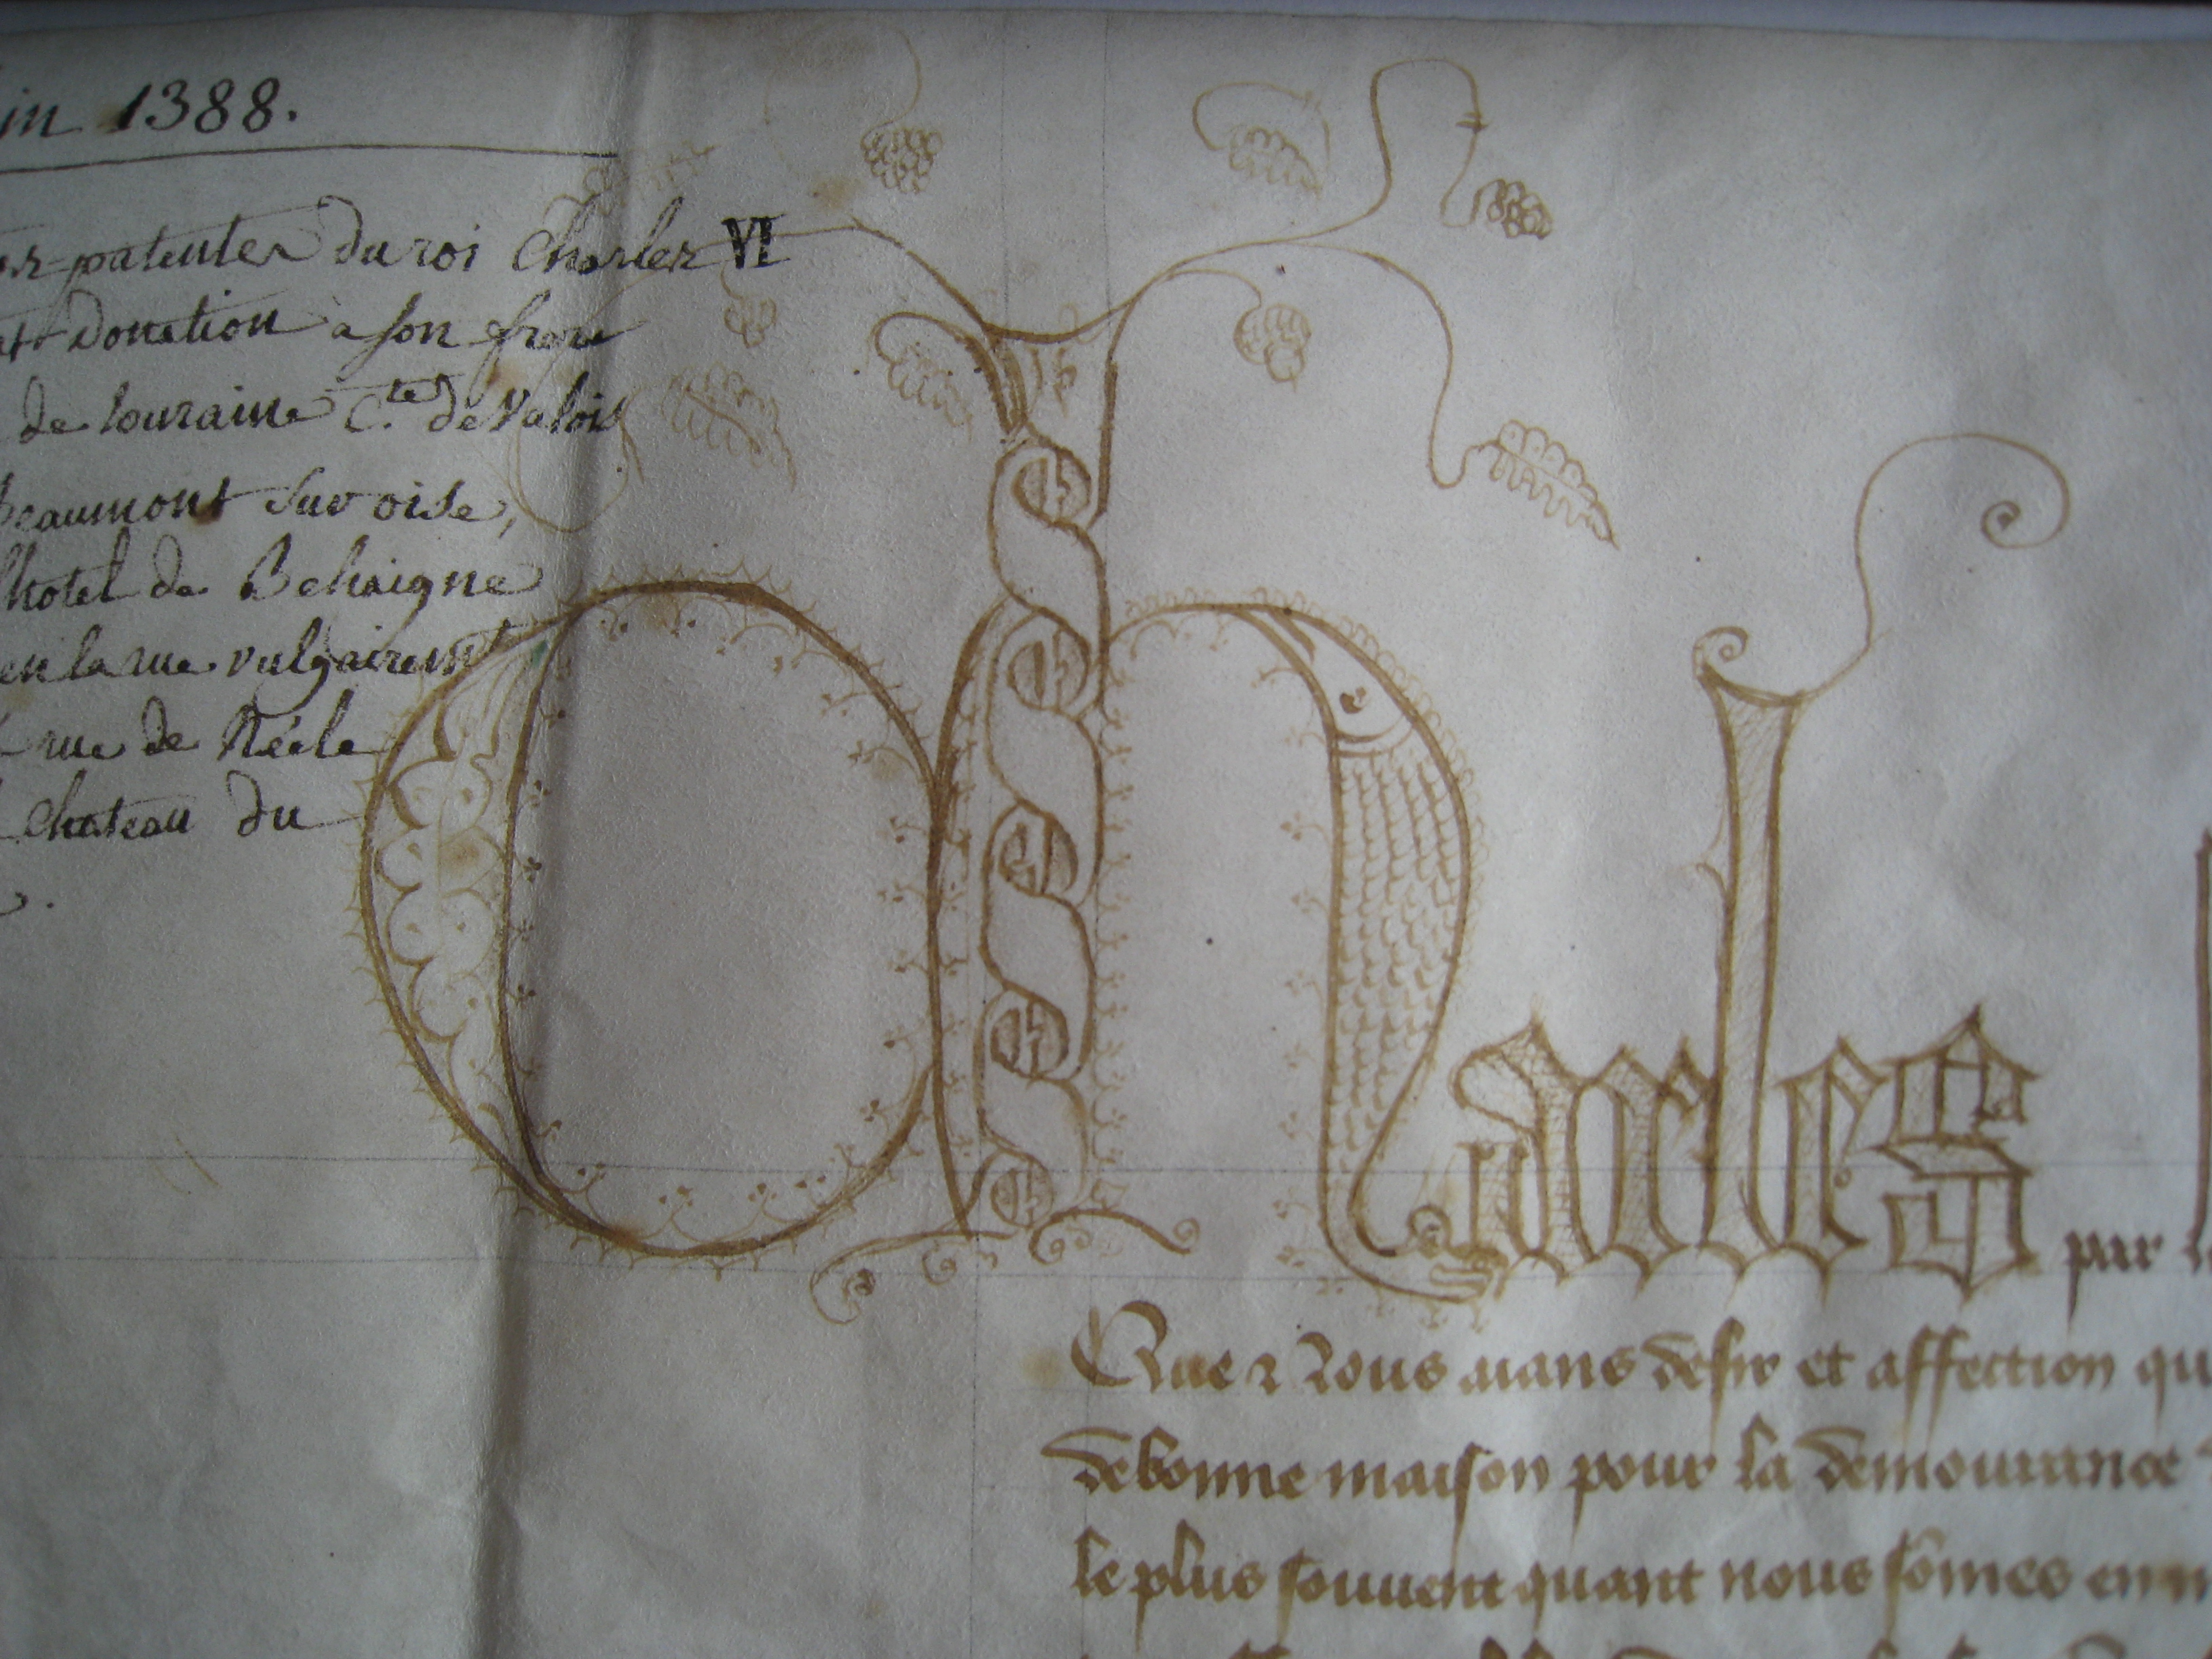 in 1388.
patentes du roi Charles VI
donation a son frere
de touraine C.te de Valois
Beaumont Sur oise,
hotel de Behaigne
en la rue vulgairemt
rue de Néele
chateau du
Charles par
Que Nous aians desir et affection qu
de bonne maison pour la demourance
le plus souuent quant nous sōmes en